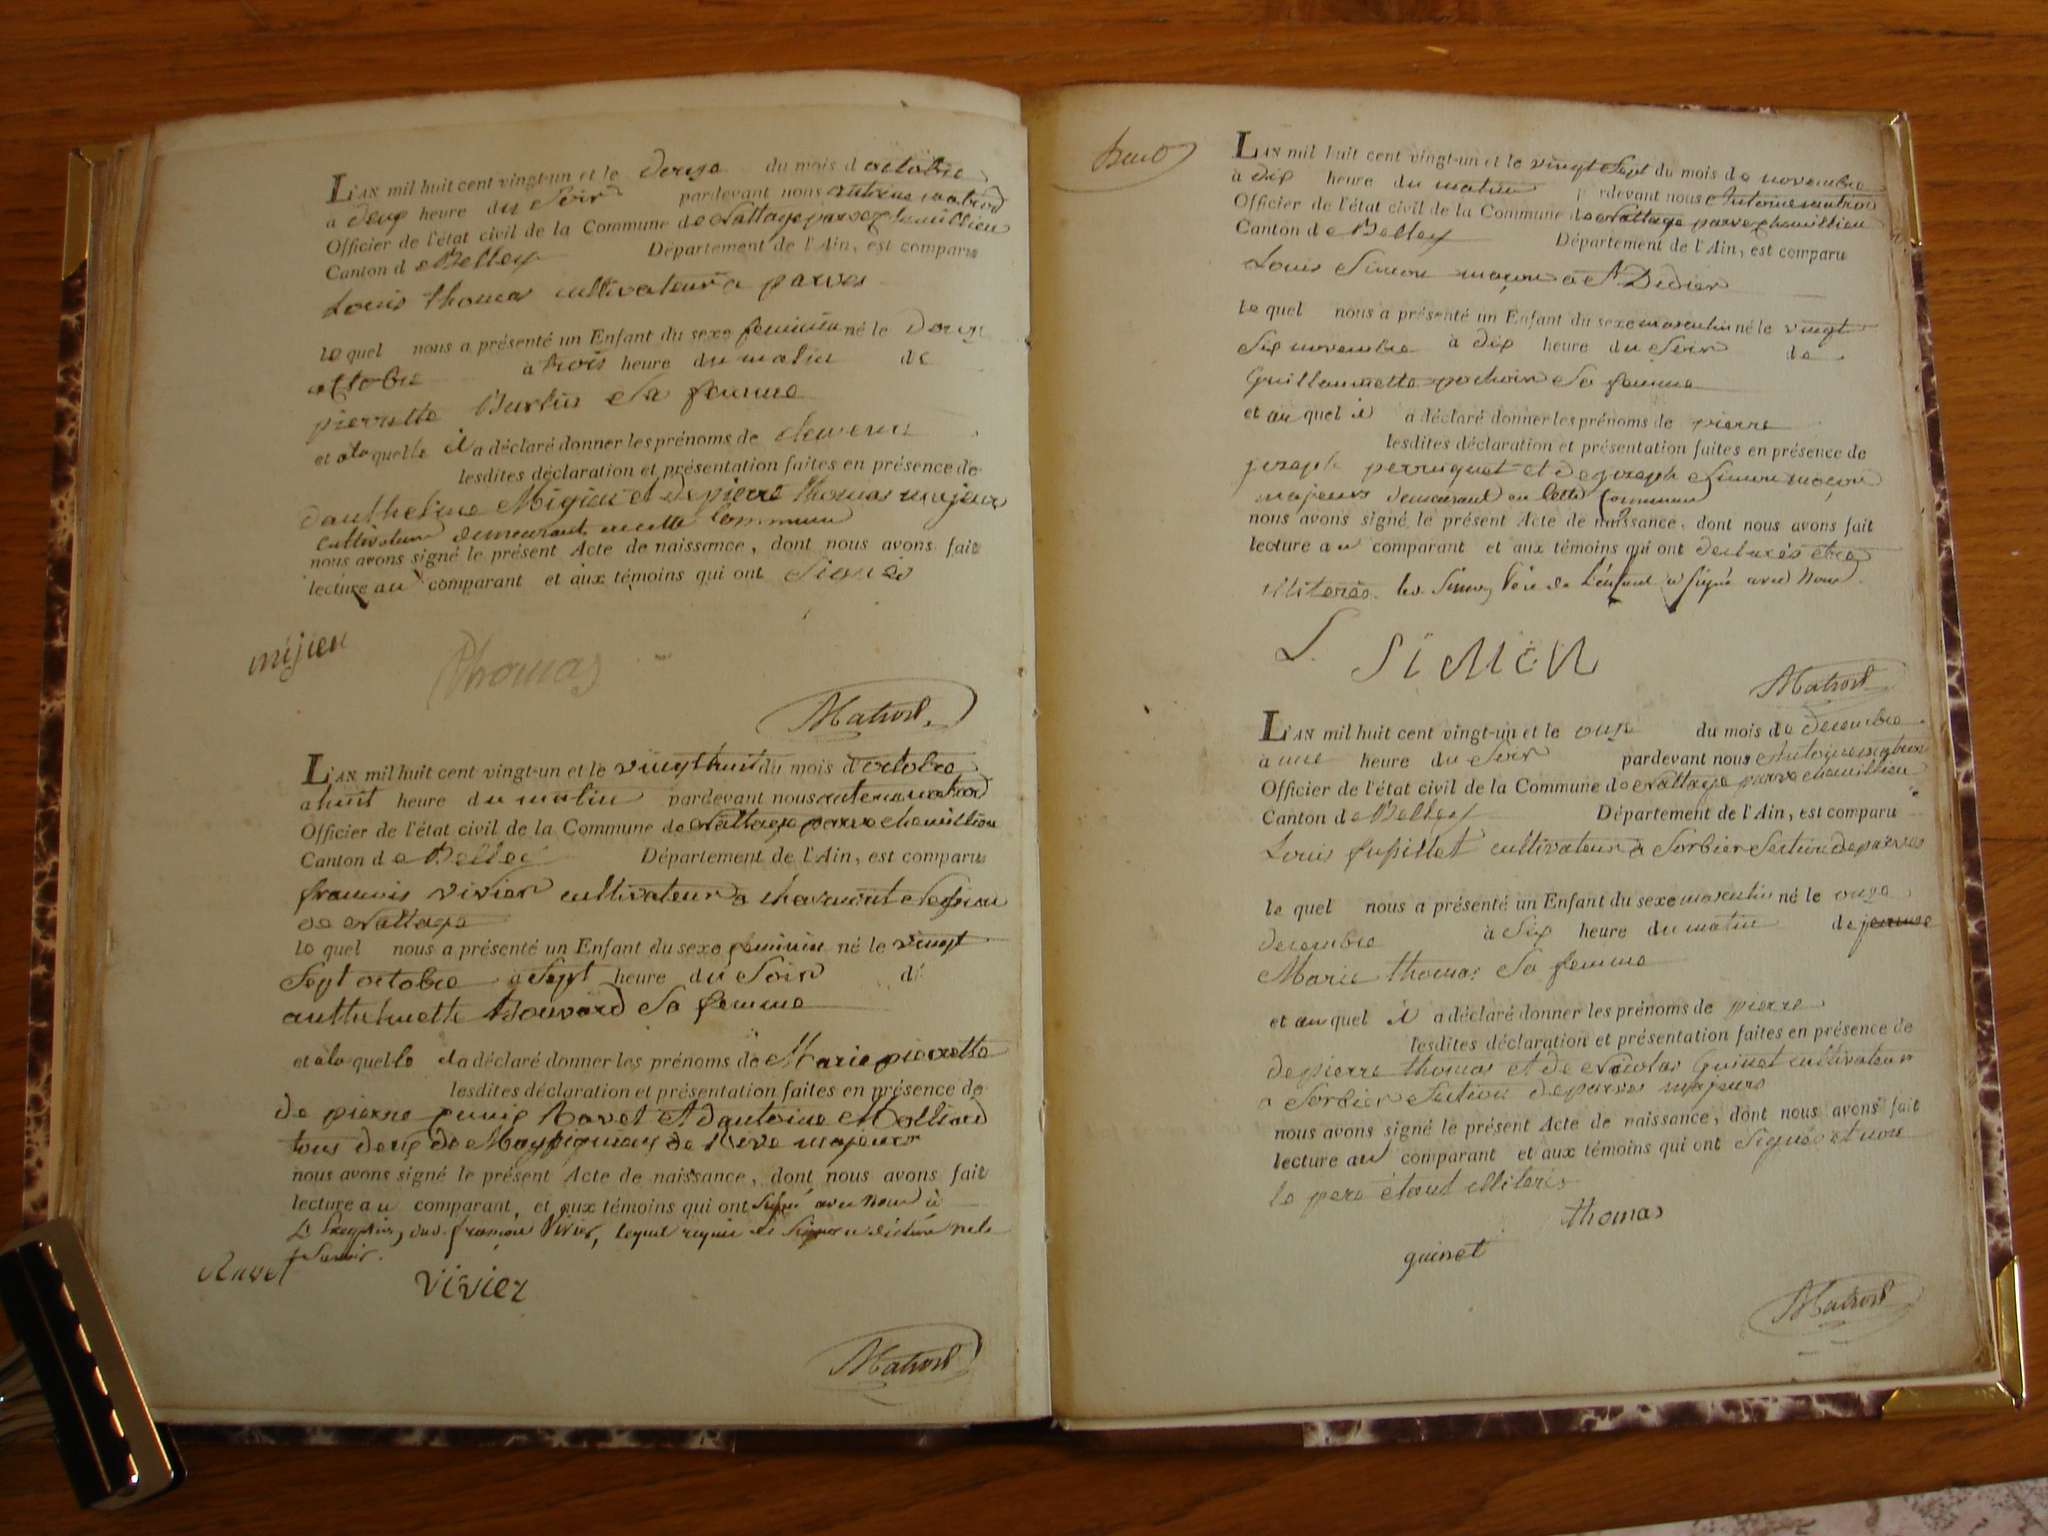 L'AN mil huit cent vingt-un et le douze du mois d octobre
a deux heure du Soir pardevant nous antoine matrod
Officier de l'état civil de la Commune de Nattage parvez chemillieu
Canton de Belley Département de l'Ain, est comparu
Louis thomas cultivateur a parves
le quel nous a présenté un Enfant du sexe feminin né le Douze
octobre à trois heure du matin de
pierrette sa femme
et a la quelle il a déclaré donner les prénoms de
lesdites déclaration et présentation faites en présence de
danthelme Migieu et de pierre thomas majeur
cultivateur demeurant en cette Commune
nous avons signé le présent Acte de naissance, dont nous avons fait
lecture au comparant et aux témoins qui ont Signés
mijieu Thomas
Matrod
L'AN mil huit cent vingt-un et le vingt huit du mois d'octobre
a huit heure du matin pardevant nous antoine matrod
Officier de l'état civil de la Commune de Nattage parve chemillieu
Canton de Belley Département de l'Ain, est comparu
francois vivier cultivateur a Section
de Nattage
le quel nous a présenté un Enfant du sexe feminin né le vingt
Sept octobre a Sept heure du Soir de
anthelmette Bouvard Sa femme
et a la quelle il a déclaré donner les prénoms de Marie pierrette
lesdites déclaration et présentation faites en présence de
de pierre Ravet et d'antoine Molliard
tous deux de de majeurs
nous avons signé le présent Acte de naissance, dont nous avons fait
lecture au comparant, et aux témoins qui ont Signé avec nous à
L'exception dud. françois Vivier, lequel requis de Signer a déclaré ne le
Savoir.
Ravet vivier
Matrod
L'AN mil huit cent vingt-un et le vingt Sept du mois de novembre
a dix heure du matin pardevant nous Antoine matrod
Officier de l'état civil de la Commune de Nattage parvez chemillieu
Canton de Belley Département de l'Ain, est comparu
Louis Simon maçon a St Didier
le quel nous a présenté un Enfant du sexe masculin né le vingt
Six novembre à dix heure du Soir de
Guillaumette pochoin Sa femme
et au quel il a déclaré donner les prénoms de pierre
lesdites déclaration et présentation faites en présence de
joseph perruquet et de joseph Simon maçon
majeurs demeurant en cette Commune
nous avons signé le présent Acte de naissance, dont nous avons fait
lecture au comparant et aux témoins qui ont declarés etre
illiterés. led. Simon, Père de L'enfant a signé avec nous.
L. SIMON
Matrod
L'AN mil huit cent vingt-un et le onze du mois de decembre
a une heure du Soir pardevant nous Antoine matrod
Officier de l'état civil de la Commune de Nattage parve chemillieu
Canton de Belley Département de l'Ain, est comparu
Louis fupillet cultivateur a Sorbier Section de parves
le quel nous a présenté un Enfant du sexe masculin né le onze
decembre à Six heure du matin de
Marie thomas Sa femme
et au quel il a déclaré donner les prénoms de pierre
lesdites déclaration et présentation faites en présence de
de pierre thomas et de Nicolas Guinet cultivateur
a Sorbier Section de parves majeurs
nous avons signé le présent Acte de naissance, dont nous avons fait
lecture au comparant et aux témoins qui ont Signé et non
le pere étant illiteris
thomas
guinet
Matrod